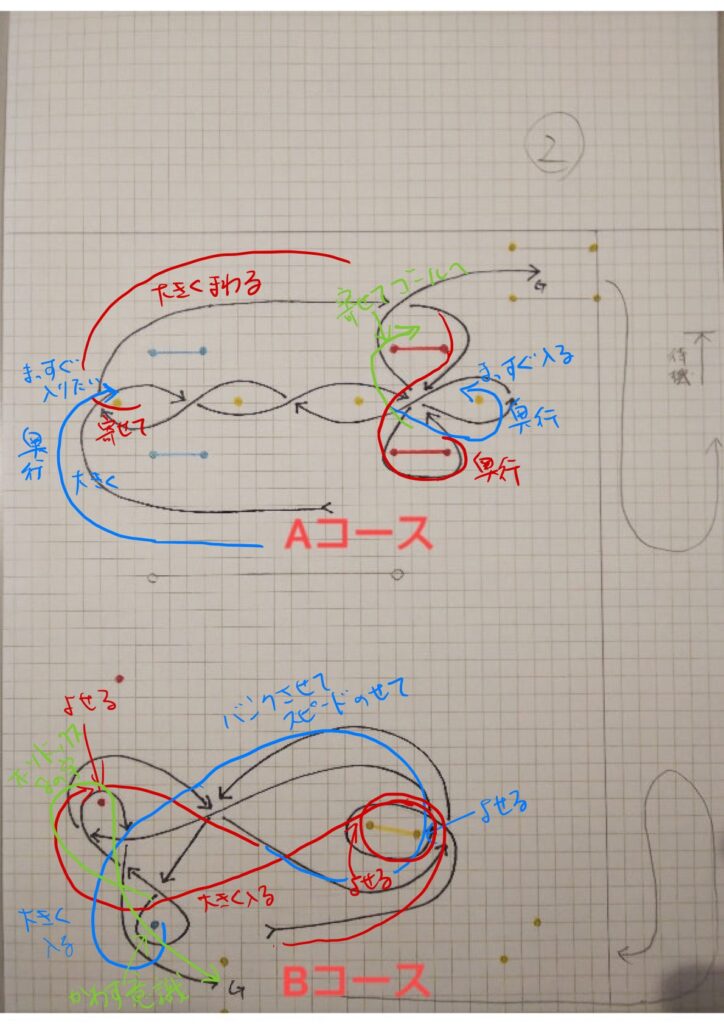 2
大きくまわる
寄せてゴールへ
G
待機
まっすぐ
入りたい
まっすぐ入る
寄せて
奥行
奥行
大きく
奥行
Aコース
よせる
バンクさせて
スピードのせて
8の字
よせる
よせる
大きく入る
大きく
入る
かわす意識
G
Bコース